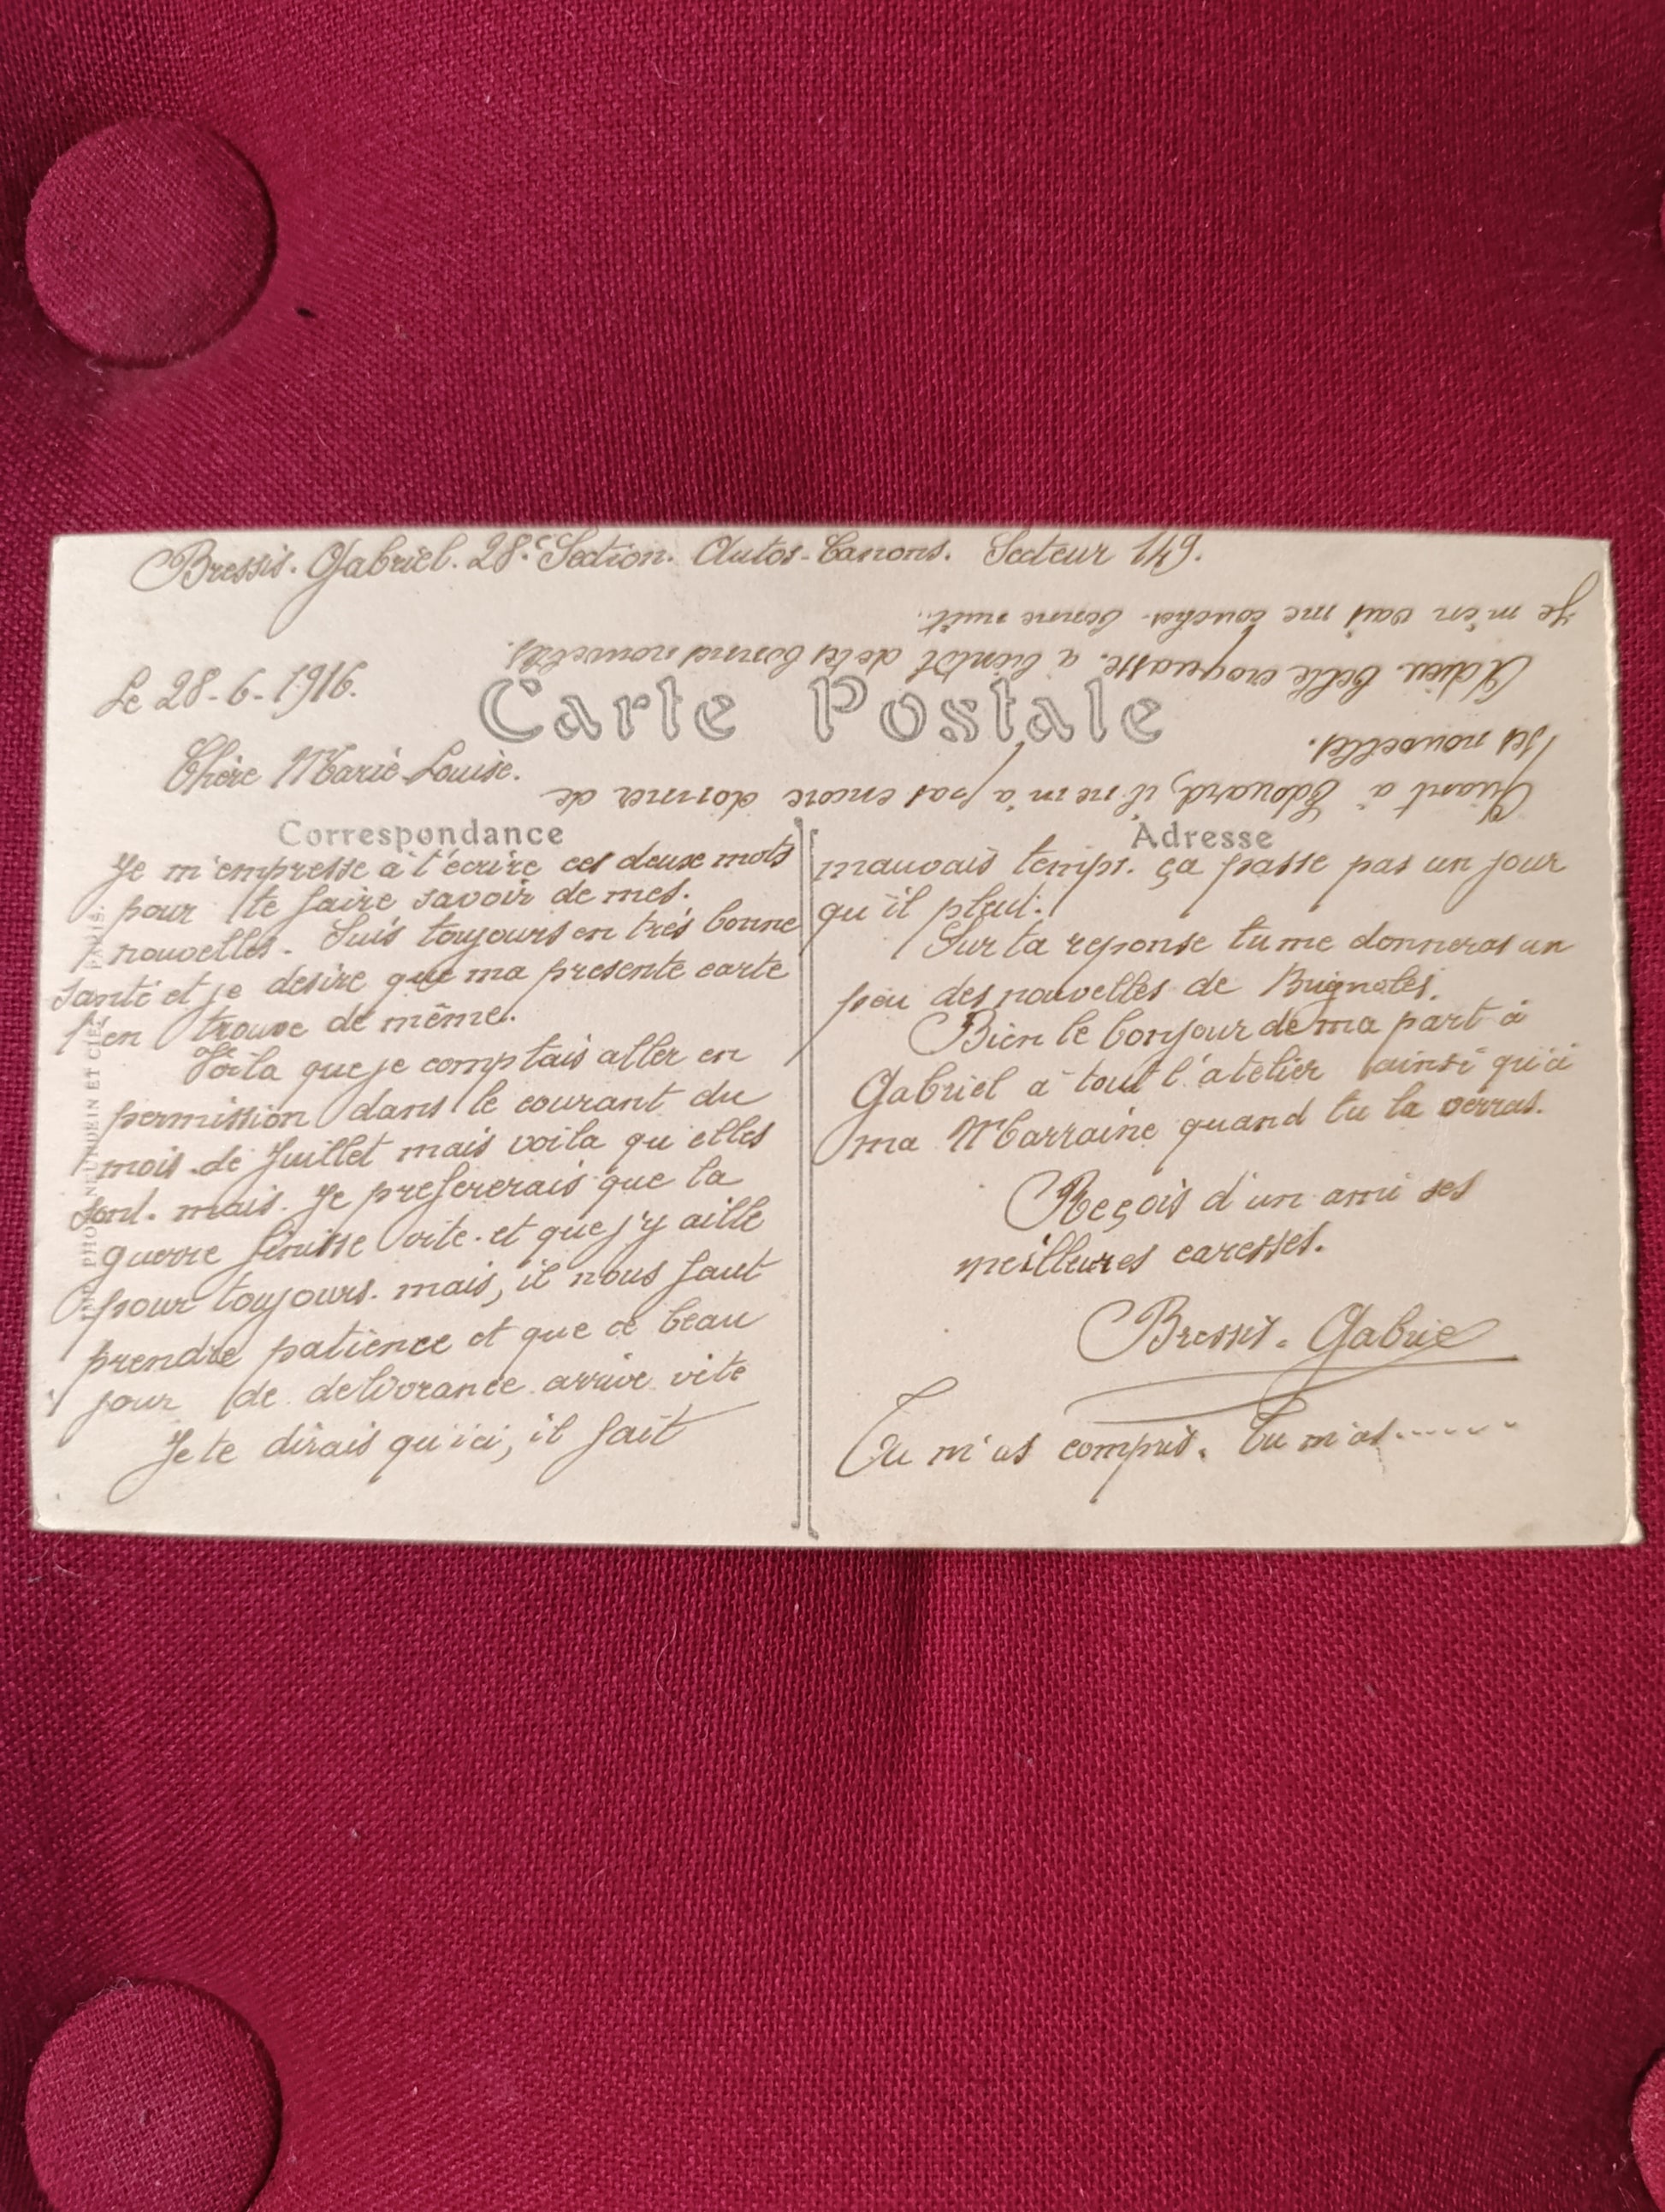 Bressis. Gabriel. 28.e Section. Autos-Canons. Secteur 149.
Le 28-6-1916.
Carte Postale
Chère Marie-Louise.
Correspondance
Je m'empresse à t'écrire ces deuse mots
pour te faire savoir de mes.
nouvelles. Suis toujours en très bonne
santé et je desire que ma presente carte
t'en trouve de même.
Voila que je comptais aller en
permission dans le courant du
mois de Juillet mais voila qu'elles
sont. mais. Je prefererais que la
guerre finisse vite. et que j'y aille
pour toujours. mais, il nous faut
prendre patience et que ce beau
jour de delivrance arrive vite
Je te dirais qu'ici, il fait
Adresse
mauvais temps. ça passe pas un jour
qu'il pleut.
Sur ta reponse tu me donneras un
peu des nouvelles de Brignoles.
Bien le bonjour de ma part à
Gabriel à tout l'atelier ainsi qu'à
ma Marraine quand tu la verras.
Reçois d'un ami ses
meilleures caresses.
Bressis. Gabrie
Tu m'as compris. Tu m'as.......
Quant à Edouard, il ne m'a pas encore donner de
ses nouvelles.
Adieu belle croquasse. a bientôt de tes bonnes nouvelles.
Je m'en vais me coucher. bonne nuit..
IMP. PHOT. NEURDEIN ET CIE. PARIS.